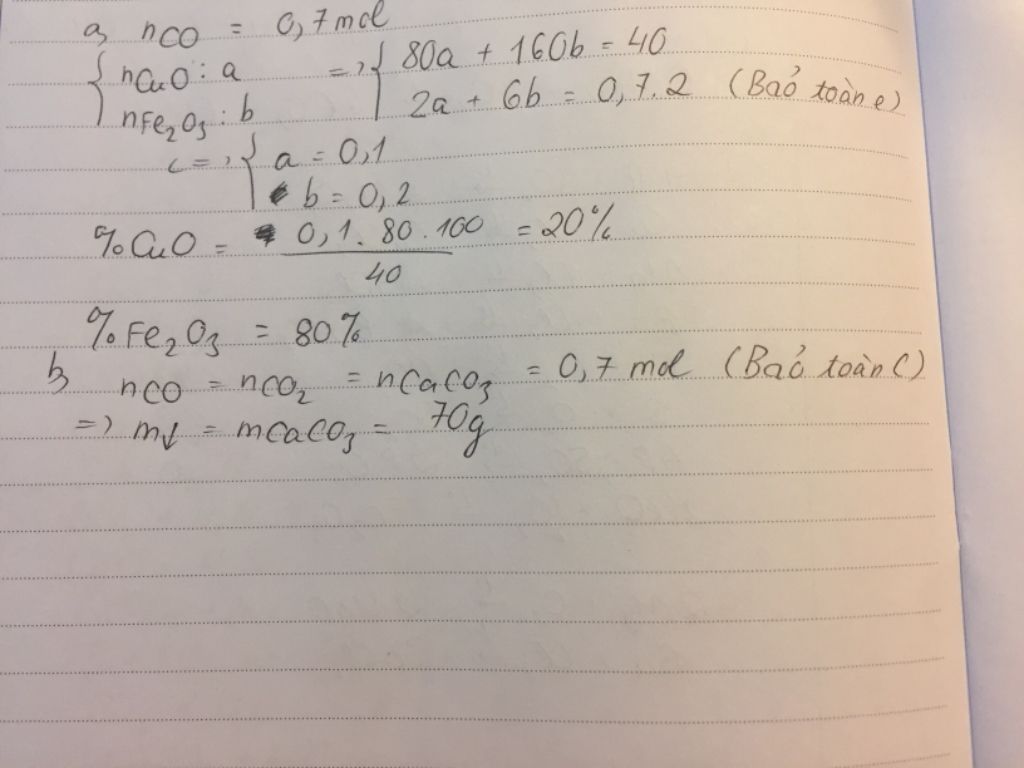 a, nCO = 0,7 mol
{ nCuO : a => { 80a + 160b = 40
nFe2O3 : b 2a + 6b = 0,7.2 (Bảo toàn e)
<=> { a = 0,1
b = 0,2
%CuO = 0,1.80.100 / 40 = 20%
%Fe2O3 = 80%
b, nCO = nCO2 = nCaCO3 = 0,7 mol (Bảo toàn C)
=> m↓ = mCaCO3 = 70g